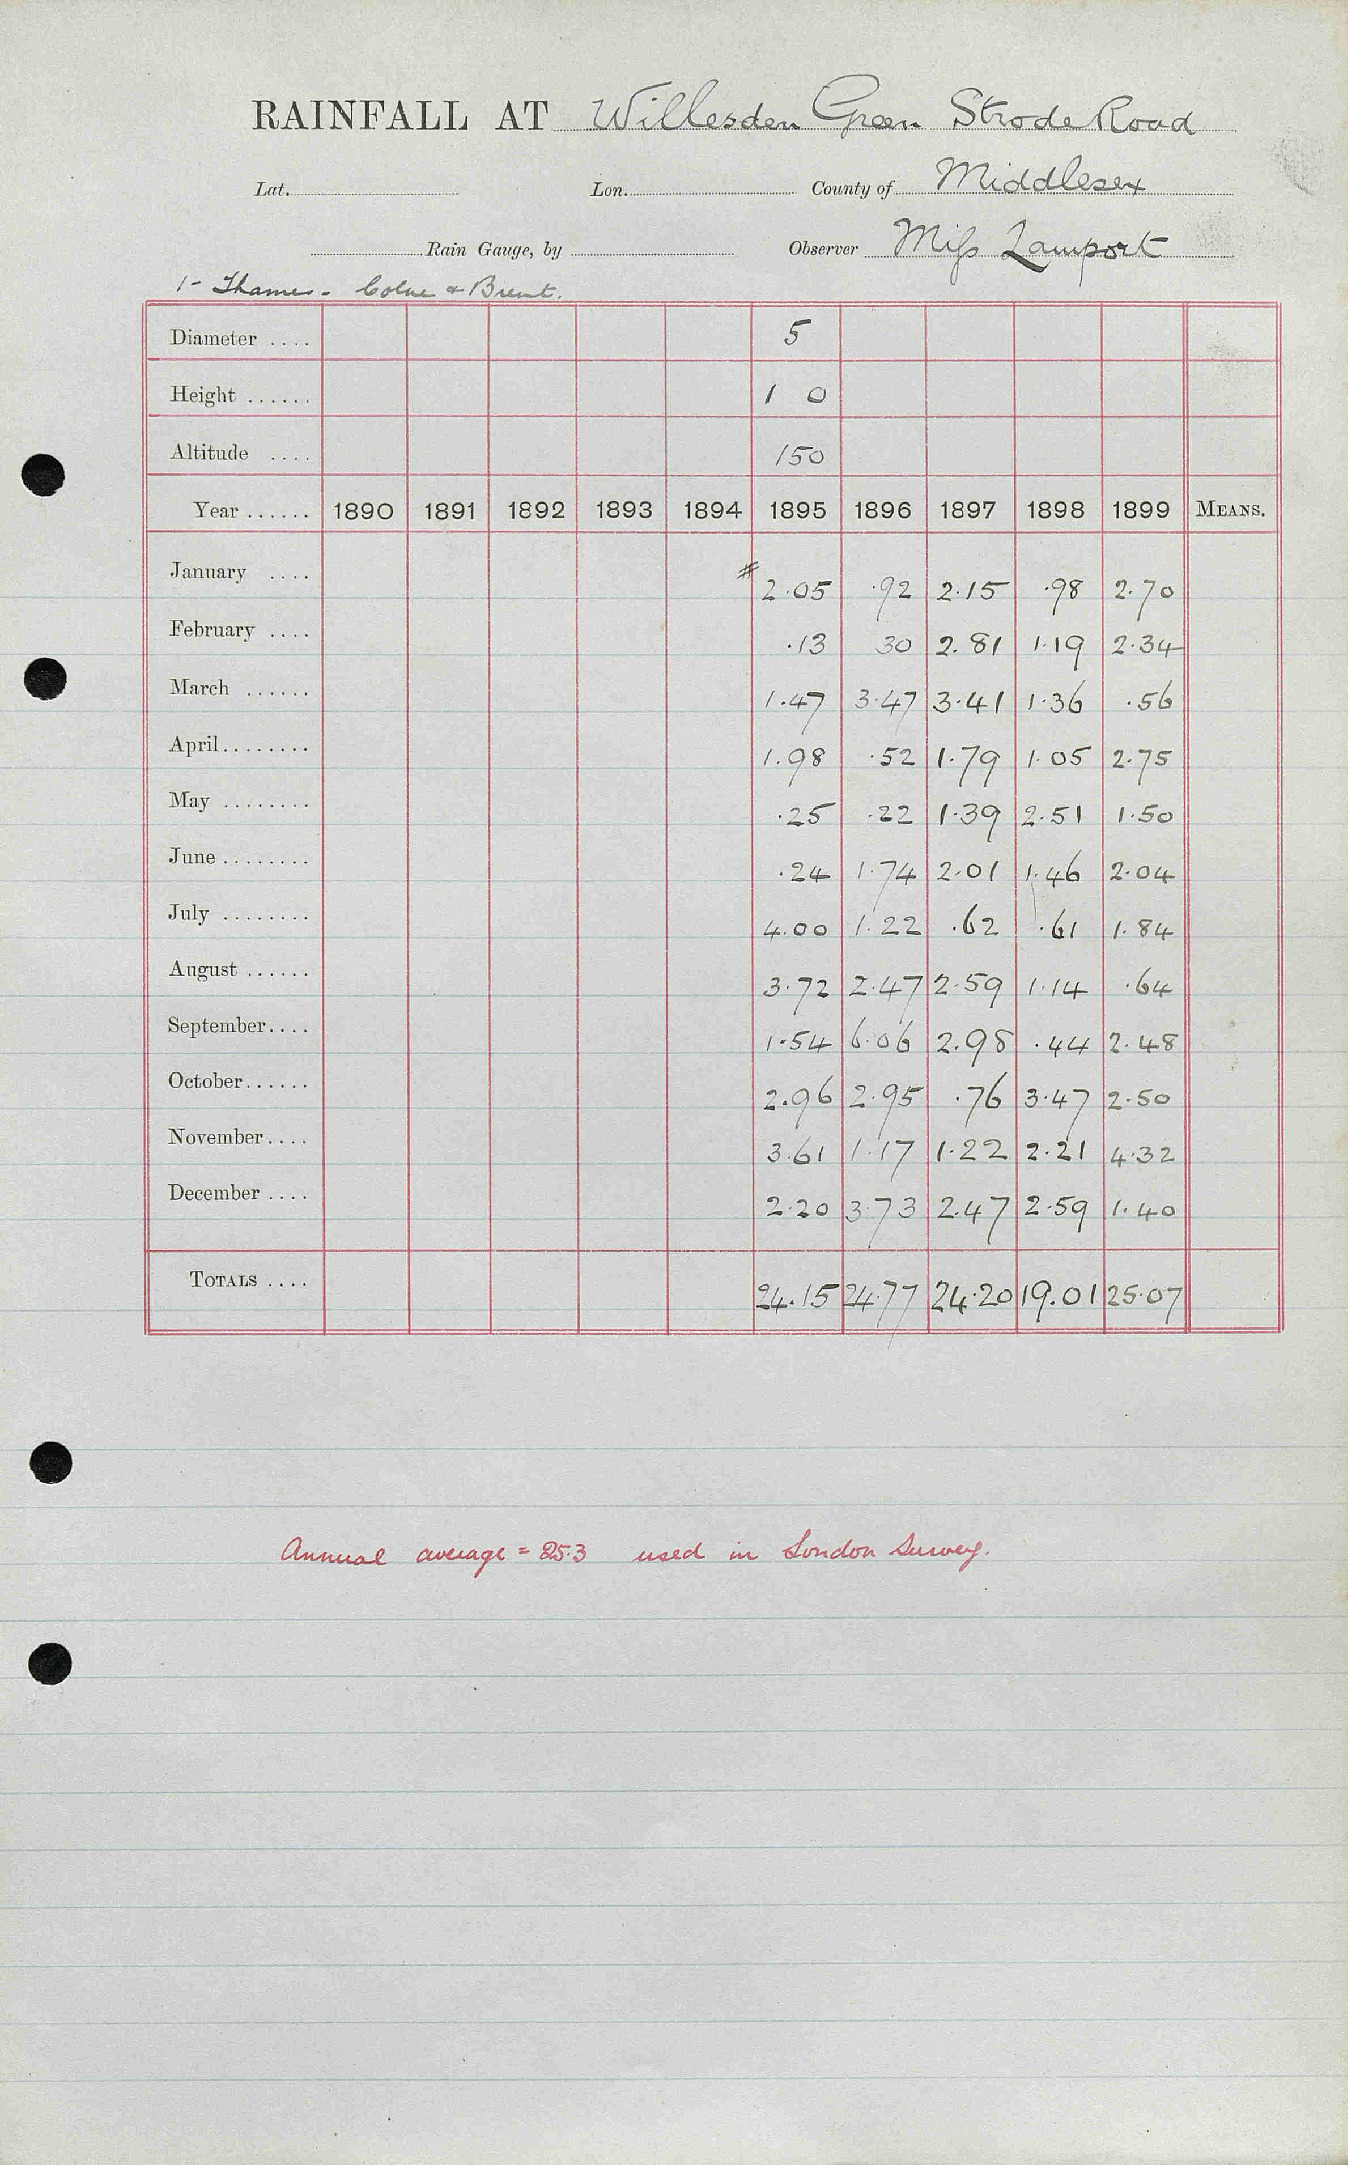 RAINFALL AT Willesden Green Strode Road
Lat. Lon. County of Middlesex
Rain Gauge, by Observer Miss Lamport
1 - Thames - Colne & Brent.
Diameter .... 5
Height ...... 1 0
Altitude .... 150
Year ...... 1890 1891 1892 1893 1894 1895 1896 1897 1898 1899 MEANS.
January .... # 2.05 .92 2.15 .98 2.70
February .... .13 30 2.81 1.19 2.34
March ...... 1.47 3.47 3.41 1.36 .56
April........ 1.98 .52 1.79 1.05 2.75
May ........ .25 .22 1.39 2.51 1.50
June ........ .24 1.74 2.01 1.46 2.04
July ........ 4.00 1.22 .62 .61 1.84
August ...... 3.72 2.47 2.59 1.14 .64
September.... 1.54 6.06 2.98 .44 2.48
October...... 2.96 2.95 .76 3.47 2.50
November.... 3.61 1.17 1.22 2.21 4.32
December .... 2.20 3.73 2.47 2.59 1.40
TOTALS .... 24.15 24.77 24.20 19.01 25.07
Annual average = 25.3 used in London Survey.